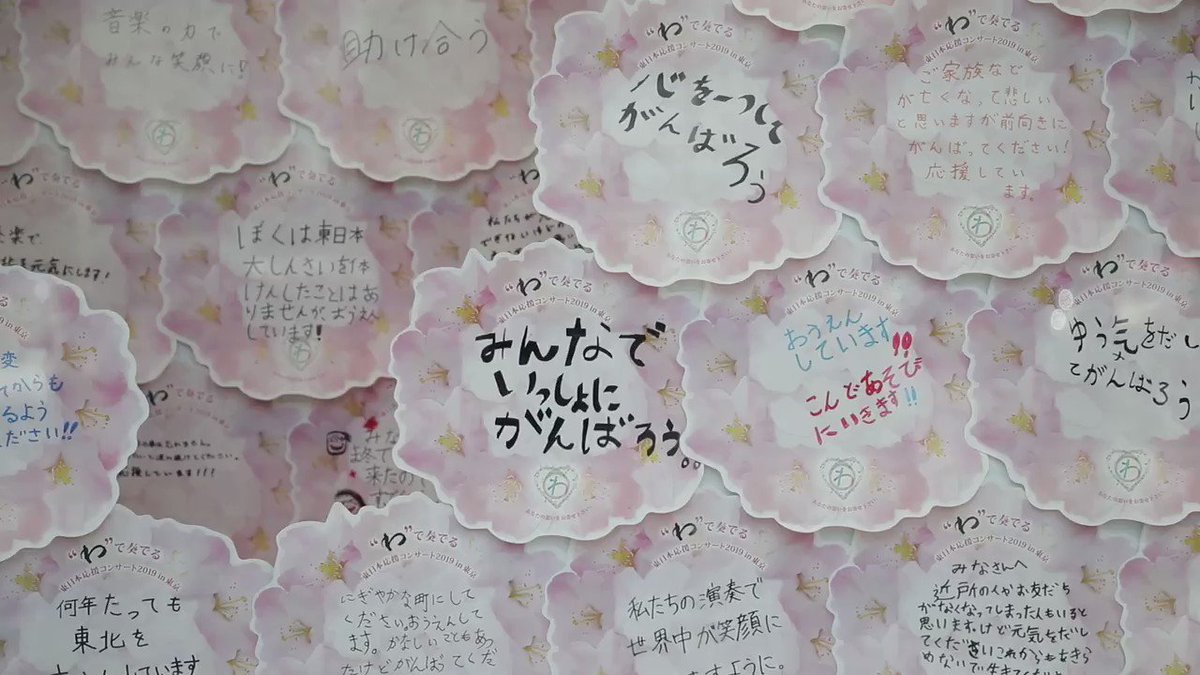 音楽の力で
みんな笑顔に!
助け合う
“わ”で奏でる
東日本応援コンサート2019 in 東京
心を一つにして
がんばろう
“わ”で奏でる
東日本応援コンサート2019 in 東京
ご家族など
が亡くなって悲しい
と思いますが前向きに
がんばってください!
応援してい
ます。
わ
“わ”で奏でる
元気にします!
“わ”で奏でる
ぼくは東日本
大しんさいを体
けんしたことはあ
りませんが、おうえん
しています!
私たちが
“わ”で奏でる
東日本応援コンサート2019 in 東京
みんなで
いっしょに
がんばろう。
わ
あなたの想いをお寄せ下さい
“わ”で奏でる
東日本応援コンサート2019 in 東京
おうえん
しています!!
こんどあそび
にいきます!!
わ
あなたの想いをお寄せ下さい
“わ”で奏でる
東日本応援コンサート2019 in 東京
ゆう気をだし
てがんばろう
わ
あなたの想いをお寄せ下さい
変
てからも
るよう
ください!!
“わ”で奏でる
応援しています!!!
みな
終で
来たの
“わ”で奏でる
東日本応援コンサート2019 in 東京
何年たっても
東北を
しています
“わ”で奏でる
東日本応援コンサート2019 in 東京
にぎやかな町にして
ください。おうえんして
ます。かなしいこともあっ
たけどがんばってくだ
“わ”で奏でる
東日本応援コンサート2019 in 東京
私たちの演奏で
世界中が笑顔に
ますように。
“わ”で奏でる
東日本応援コンサート2019 in 東京
みなさんへ
近所の人やお友だち
がなくなってしまった人もいると
思います。けど元気をだし
てください。これからもあきら
めないで生きてくださ